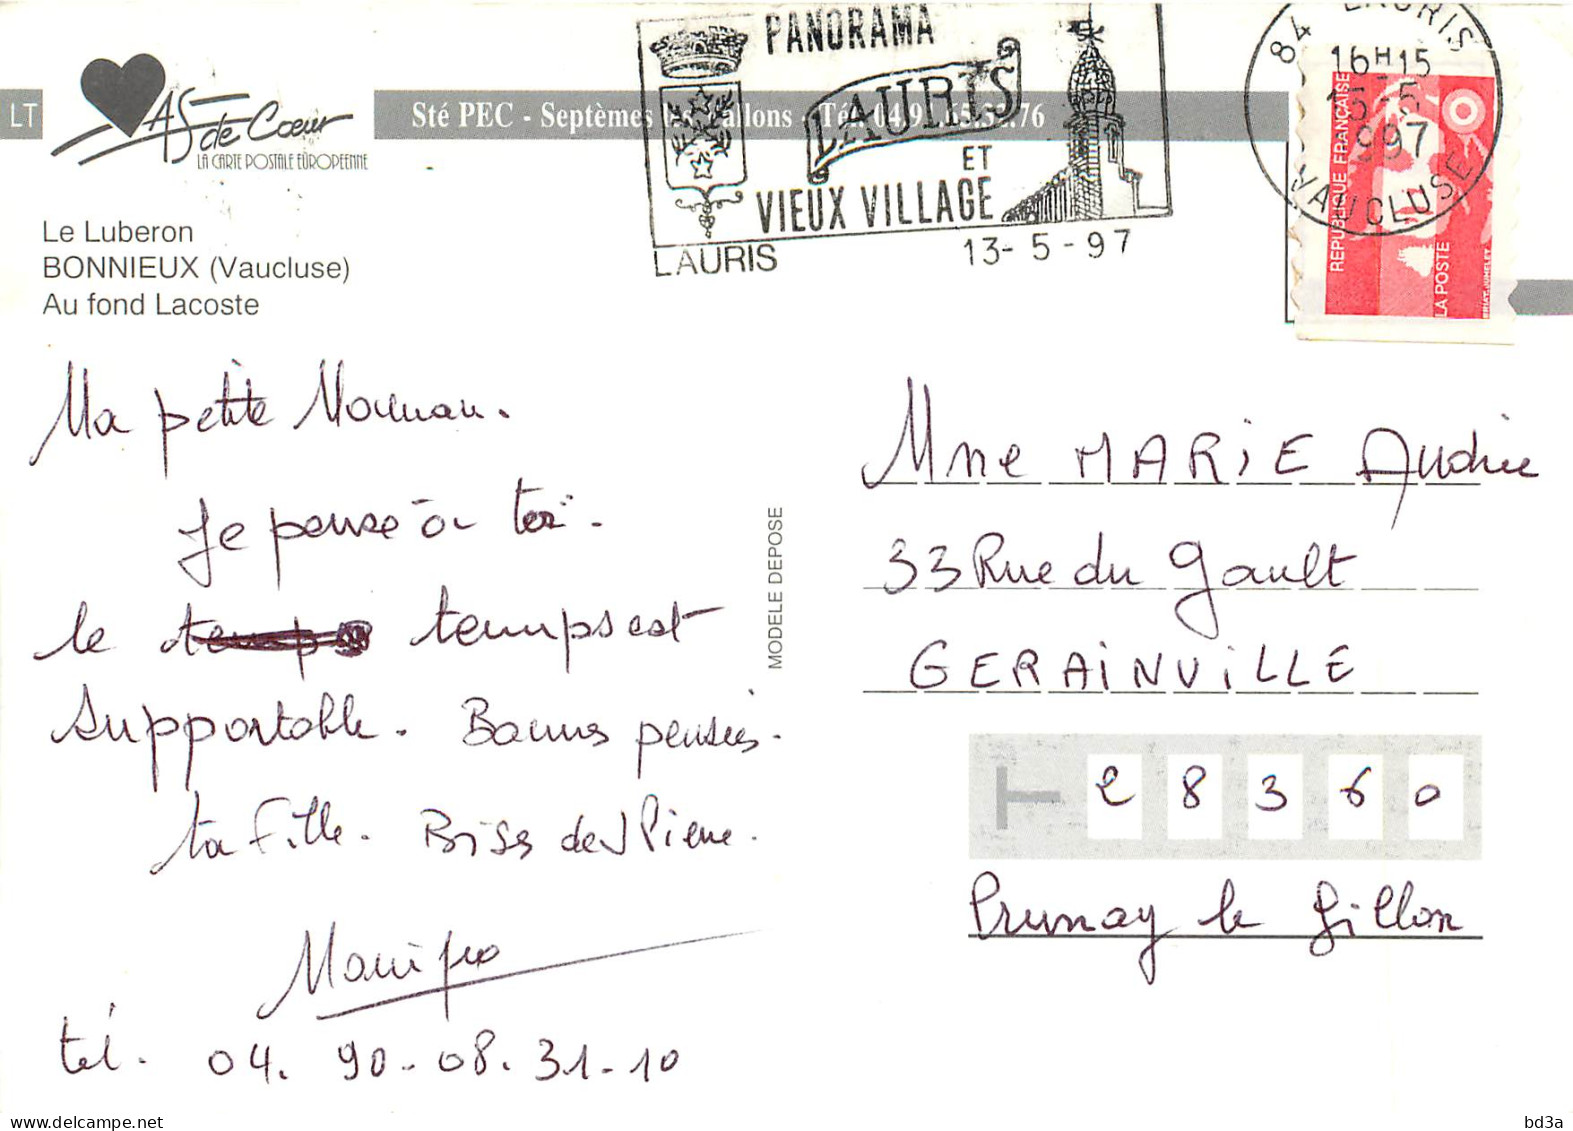 PANORAMA
LAURIS
ET
VIEUX VILLAGE
LAURIS 13-5-97
84 LAURIS
16H15
997
VAUCLUSE
REPUBLIQUE FRANÇAISE
LA POSTE
LT
AS de Coeur
LA CARTE POSTALE EUROPEENNE
Sté PEC - Septèmes
Le Luberon
BONNIEUX (Vaucluse)
Au fond Lacoste
Ma petite Maman.
Je pense à toi.
le temps temps est
supportable. Bonnes pensées.
ta fille. Bises de Pierre.
tel. 04. 90-08.31-10
MODELE DEPOSE
Mme MARIE Andrée
33 Rue du Gault
GERAINVILLE
28360
Prunay le Gillon
delcampe.net
bd3a